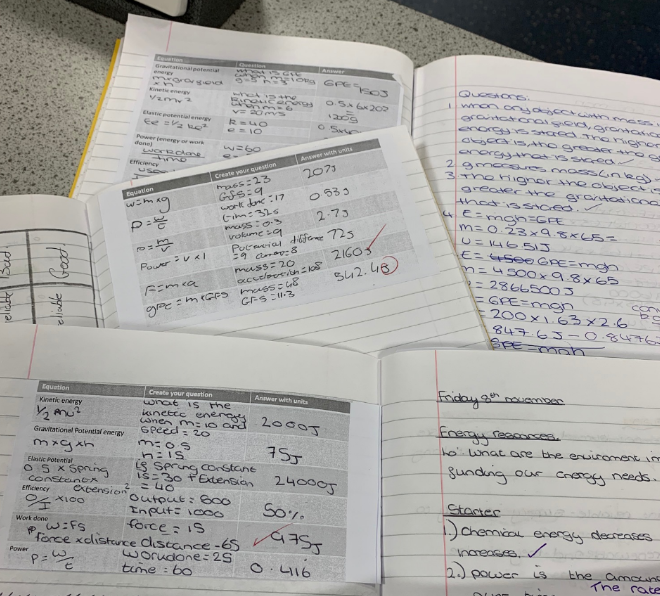 Equation Question Answer
Gravitational potential
energy
GPE=
Kinetic energy
1/2mv²
what is the
kinetic energy
when m=6
v=20ms
0.5x6x20²
1200J
Elastic potential energy
Ee=1/2 ke²
k=40
e=10
Power (energy or work
done)
work done
time
w=60
Efficiency
Equation Create your question Answer with units
w=mxg
mass=23
GFS=9
207J
P=w/t
work done=17
time=32s
0.53J
p=m/v
mass=0.3
volume=9
2.7J
Power=vxI
Potential difference
=9
72s
F=mxa
mass=20
acceleration=108
2160J
gpe=mxGFS
mass=48
GFS=11.3
542.4
Questions:
1. when an object with mass
gravitational
energy is stored. The higher
object is, the greater the g
energy that is stored.
2 g measures mass (in kg).
3 The higher the object is
greater the gravitational
that is stored.
4 E=mgh=GPE
m=0.23x9.8x65=
=146.51J
E= GPE=mgh
=4500x9.8x65
=2866500J
=GPE=mgh
=200x1.63x2.6
847.6J=0.8476
GPE=mgh
eliable Bad!
eliable Good!
Equation Create your question Answer with units
Kinetic energy
1/2 mv²
what is the
kinetic energy
when m=10 and
speed=20
2000J
Gravitational Potential energy
mxgxh
m=0.5
h=15
75J
Elastic Potential
0.5xspring
constantx
extension²
is spring constant
is=30+Extension
=40
24000J
Efficiency
O/I x100
Output=500
Input=1000
50%
Work done
W=Fs
force x distance
force=15
distance=65
975J
Power
P=w/t
workdone=25
time=60
0.416
Friday 8th november
Energy resources.
lo: what are the enviroment im
funding our energy needs.
Starter
1.) Chemical energy decreases
increases.
2.) power is the amoun
The rate